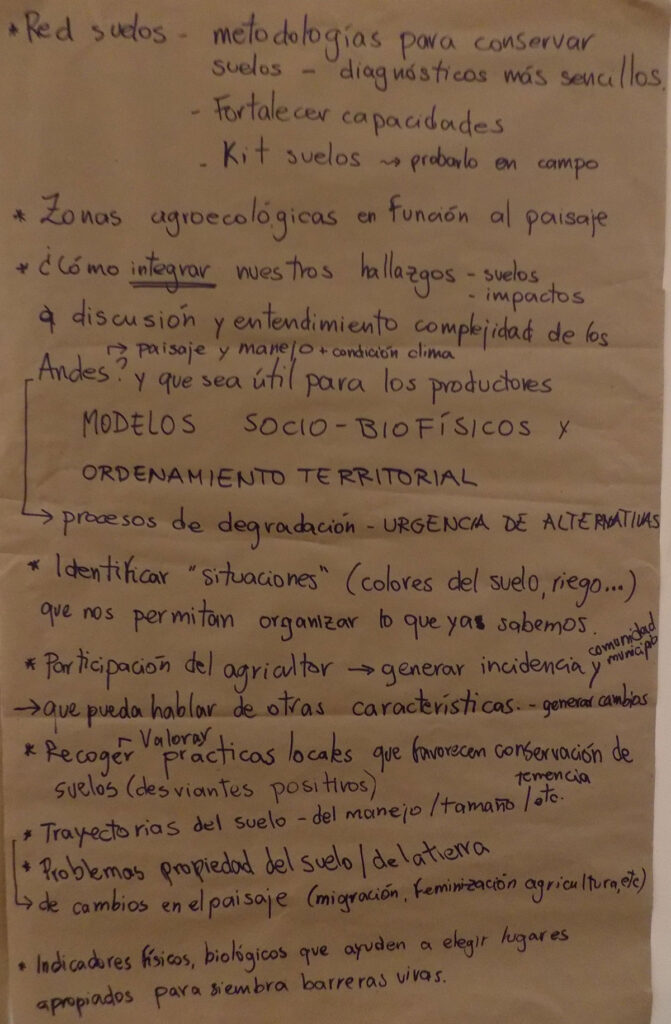 * Red suelos - metodologías para conservar
suelos - diagnósticos más sencillos.
- Fortalecer capacidades
- Kit suelos → probarlo en campo
* Zonas agroecológicas en función al paisaje
* ¿Cómo integrar nuestros hallazgos - suelos
- impactos
a discusión y entendimiento complejidad de los
→ paisaje y manejo + condición clima
Andes? y que sea útil para los productores
MODELOS SOCIO-BIOFÍSICOS Y
ORDENAMIENTO TERRITORIAL
→ procesos de degradación - URGENCIA DE ALTERNATIVAS
* Identificar "situaciones" (colores del suelo, riego...)
que nos permitan organizar lo que ya sabemos.
comunidad
* Participación del agricultor → generar incidencia y municipio
→ que pueda hablar de otras características. - generar cambios
Valorar
* Recoger prácticas locales que favorecen conservación de
suelos (desviantes positivos)
temencia
* Trayectorias del suelo - del manejo / tamaño / etc.
* Problemas propiedad del suelo / de la tierra
→ de cambios en el paisaje (migración, feminización agricultura, etc)
* Indicadores físicos, biológicos que ayuden a elegir lugares
apropiados para siembra barreras vivas.